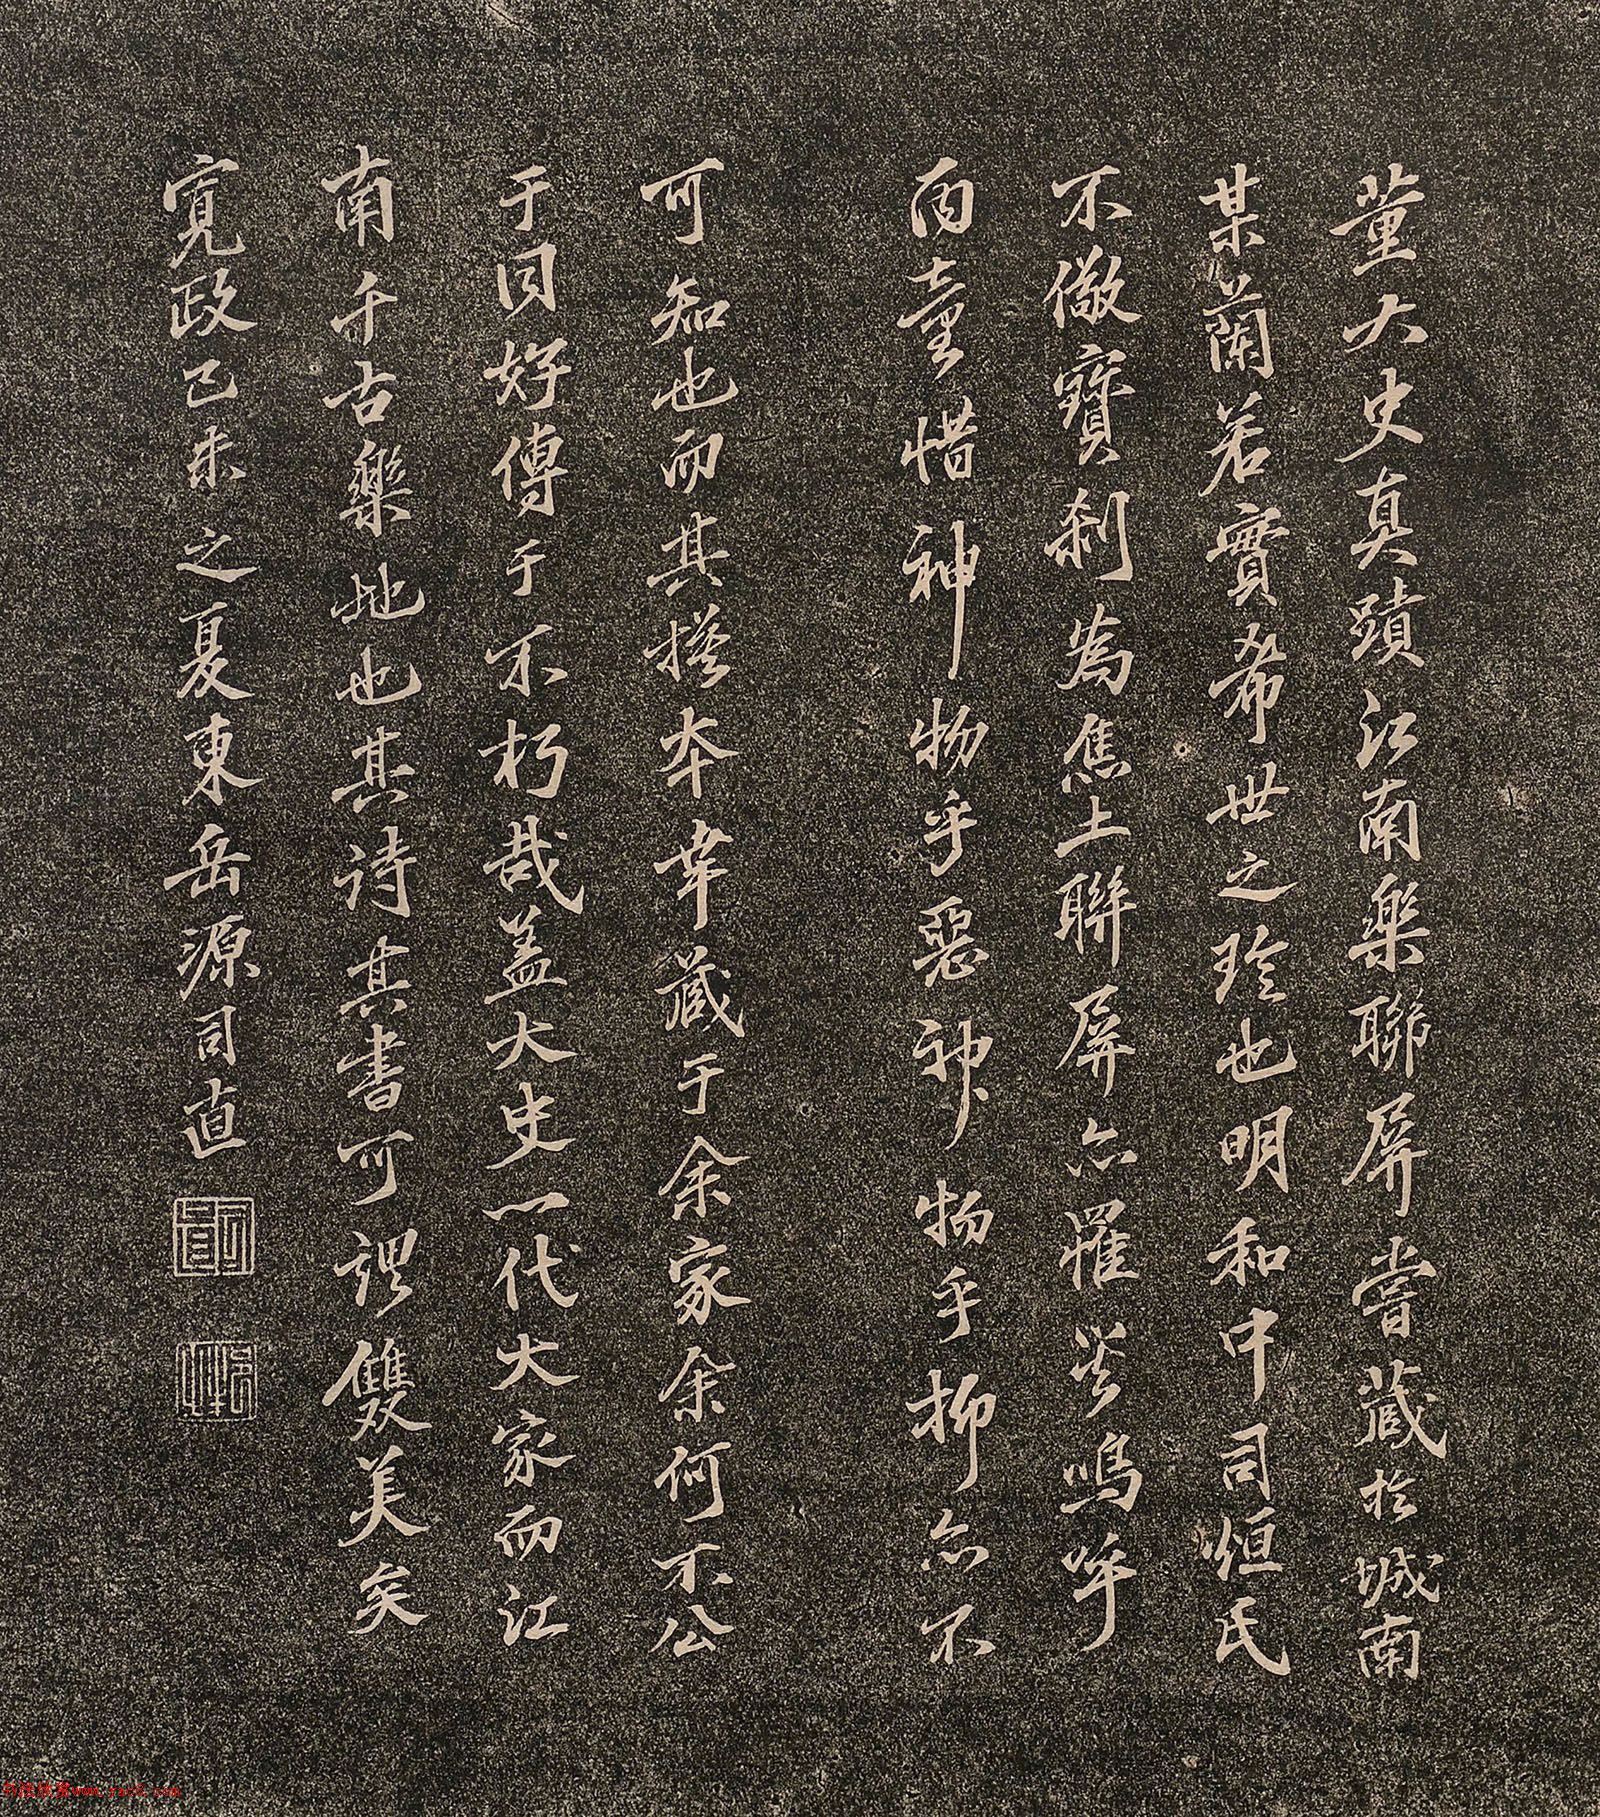 董大史真蹟江南樂聯屏嘗藏於城南
某蘭若實希世之珍也明和中司烜氏
不儆寶刹為焦土聯屏亦罹災嗚呼
丙童惜神物乎惡神物乎抑亦不
可知也而其搨本幸藏于余家余何不公
于同好傳于不朽哉盖大史一代大家而江
南千古樂地也其詩其書可謂雙美矣
寬政己未之夏東岳源司直
www.yac8.com